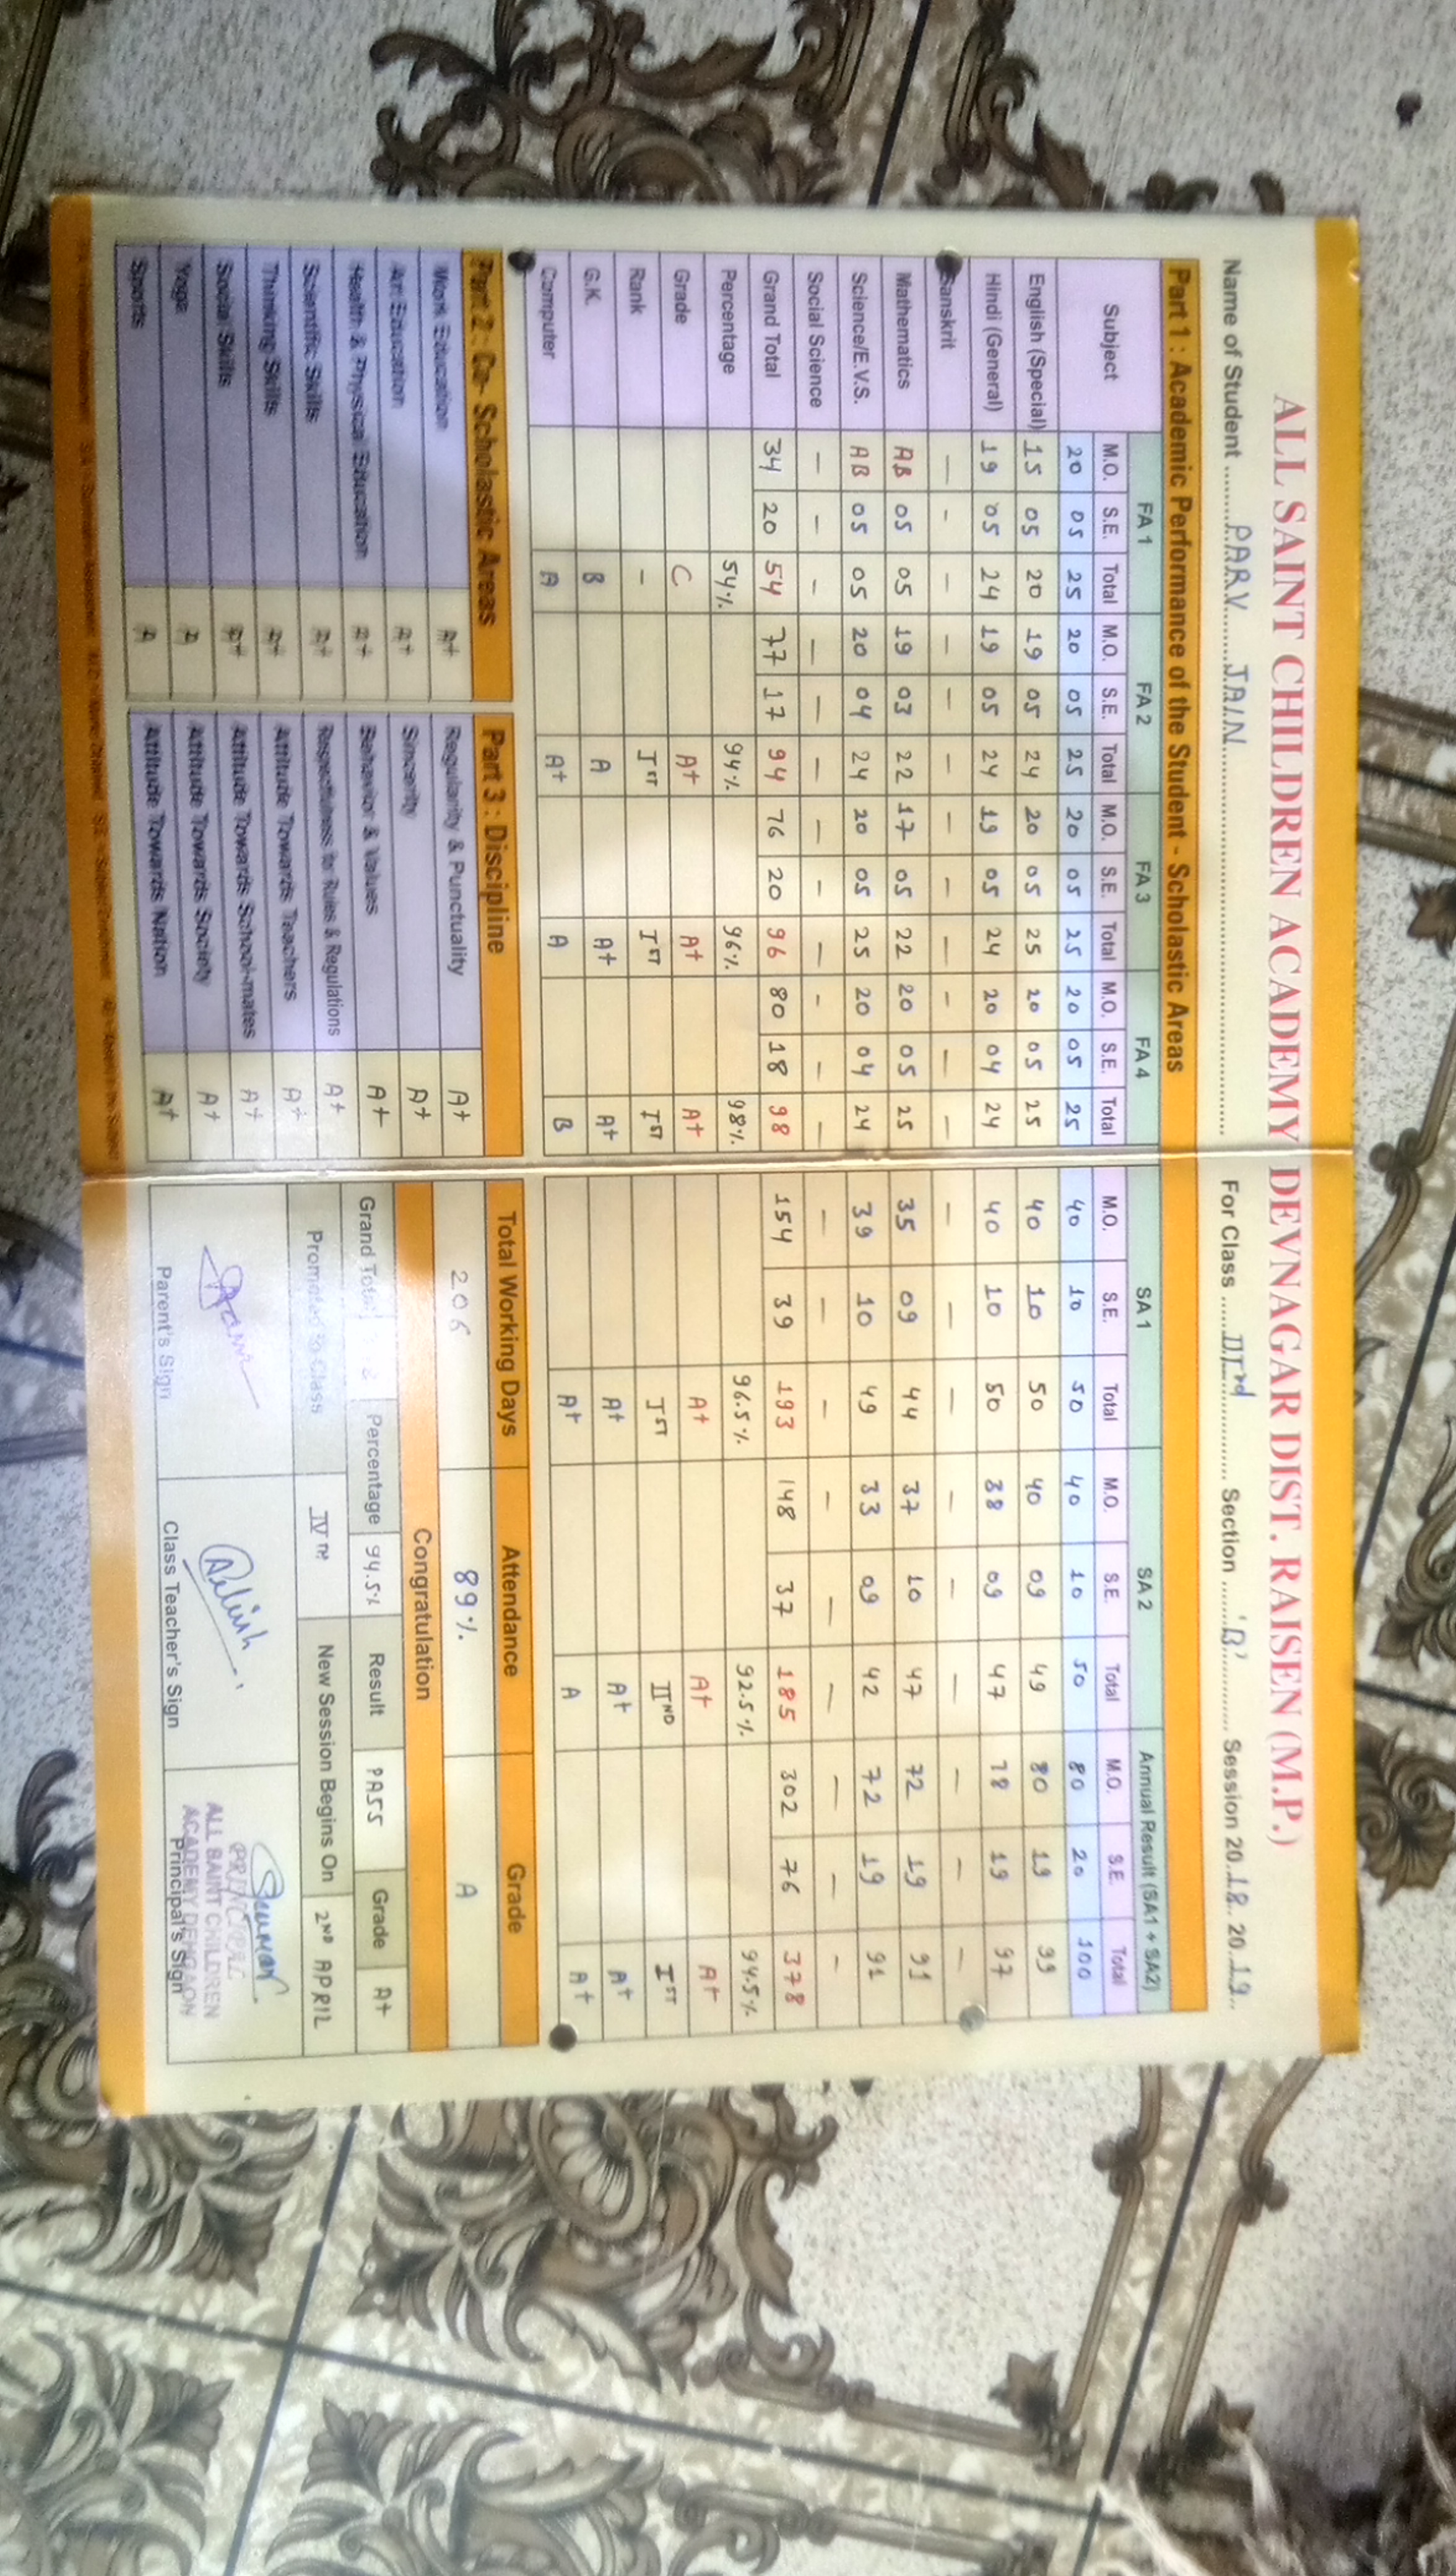 ALL SAINT CHILDREN ACADEMY DEVNAGAR DIST. RAISEN (M.P.)
Name of Student ........PARV......JAIN........ For Class .....IIIrd....... Section ........'B'........ Session 20.18.. 20.19..
Part 1 : Academic Performance of the Student - Scholastic Areas
Subject FA 1 FA 2 FA 3 FA 4 SA 1 SA 2 Annual Result (SA1 + SA2)
M.O. S.E. Total M.O. S.E. Total M.O. S.E. Total M.O. S.E. Total M.O. S.E. Total M.O. S.E. Total M.O. S.E. Total
20 05 25 20 05 25 20 05 25 20 05 25 40 10 50 40 10 50 80 20 100
English (Special) 15 05 20 19 05 24 20 05 25 20 05 25 40 10 50 40 09 49 80 19 99
Hindi (General) 19 05 24 19 05 24 19 05 24 20 04 24 40 10 50 38 09 47 78 19 97
Sanskrit — - — — — — — — — — — — — — — — — — — — —
Mathematics AB 05 05 19 03 22 17 05 22 20 05 25 35 09 44 37 10 47 72 19 91
Science/E.V.S. AB 05 05 20 04 24 20 05 25 20 04 24 39 10 49 33 09 42 72 19 91
Social Science — - - — — — — - — - — — — — — — — — — — -
Grand Total 34 20 54 77 17 94 76 20 96 80 18 98 154 39 193 148 37 185 302 76 378
Percentage 54% 94% 96% 98% 96.5% 92.5% 94.5%
Grade C A+ A+ A+ A+ A+ A+
Rank - IST IST IST IST IIND IST
G.K. B A A+ A+ A+ A+ A+
Computer A A+ A B A+ A A+
Part 2 : Co- Scholastic Areas
Work Education A+
Art Education A+
Health & Physical Education A+
Scientific Skills A+
Thinking Skills A+
Social Skills A+
Yoga A
Sports A
Part 3 : Discipline
Regularity & Punctuality A+
Sincerity A+
Behavior & Values A+
Respectfulness to Rules & Regulations A+
Attitude Towards Teachers A+
Attitude Towards School-mates A+
Attitude Towards Society A+
Attitude Towards Nation A+
Total Working Days Attendance Grade
206 89% A
Congratulation
Grand Total Percentage 94.5% Result PASS Grade A+
Promoted to Class IVTH New Session Begins On 2ND APRIL
PRINCIPAL
ALL SAINT CHILDREN
Parent's Sign Class Teacher's Sign Principal's Sign